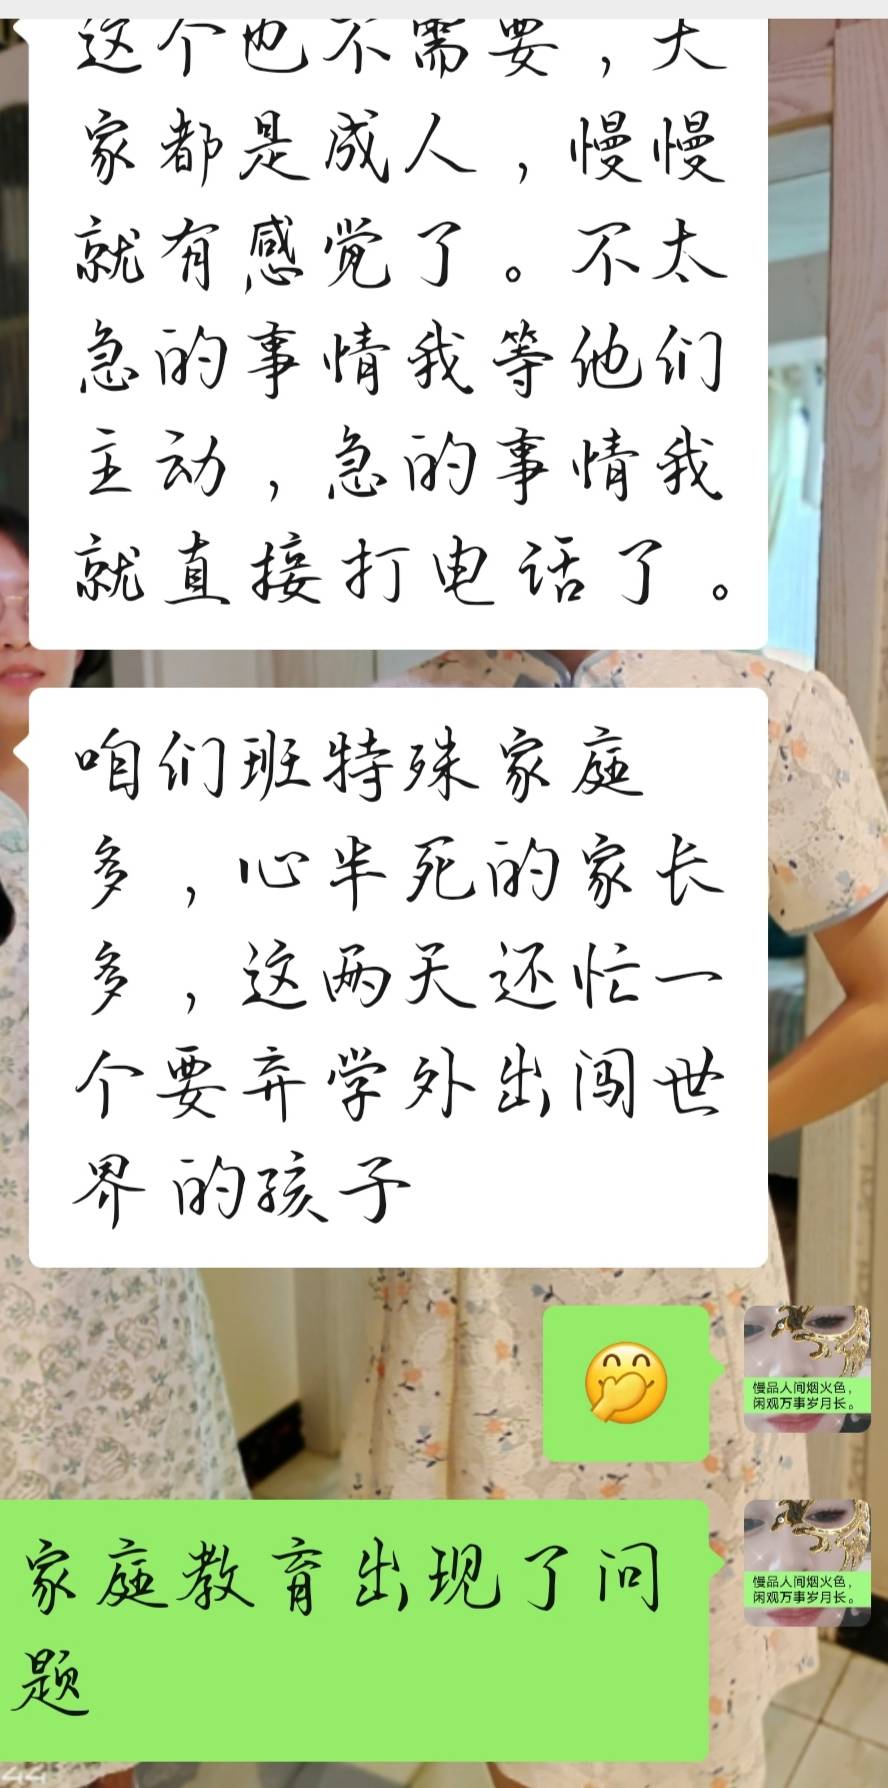 这个也不需要，大
家都是成人，慢慢
就有感觉了。不太
急的事情我等他们
主动，急的事情我
就直接打电话了。
咱们班特殊家庭
多，心半死的家长
多，这两天还忙一
个要弃学外出闯世
界的孩子
慢品人间烟火色，
闲观万事岁月长。
家庭教育出现了问
题
慢品人间烟火色，
闲观万事岁月长。